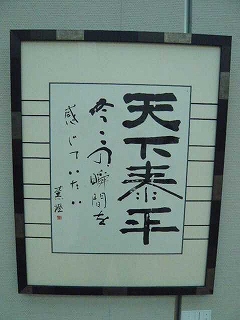 天下泰平
今この瞬間を
感じていたい